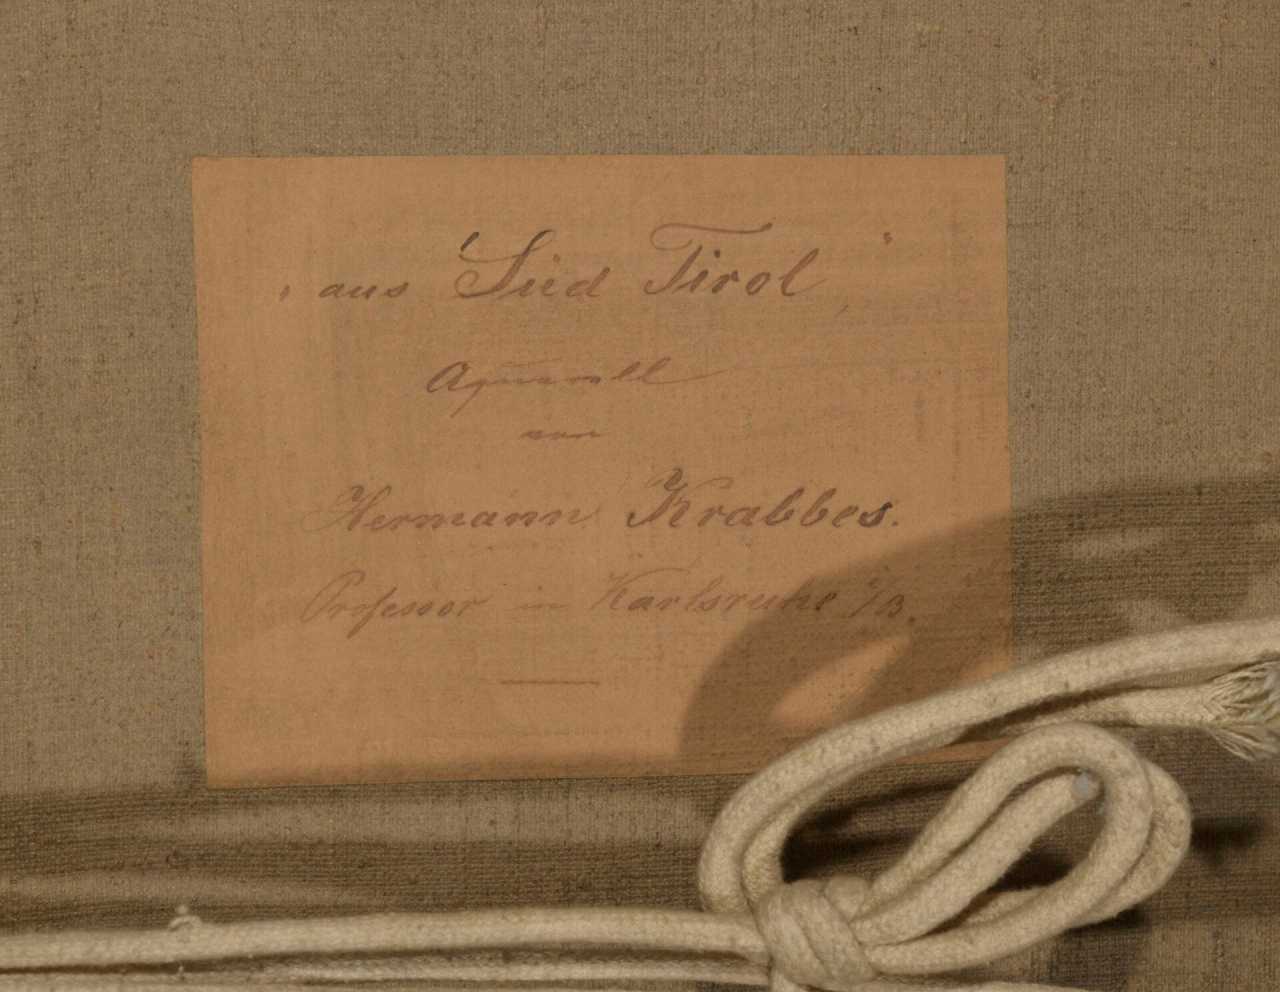 „aus Süd Tirol“
Aquarell
von
Hermann Krabbes.
Professor in Karlsruhe i/B.